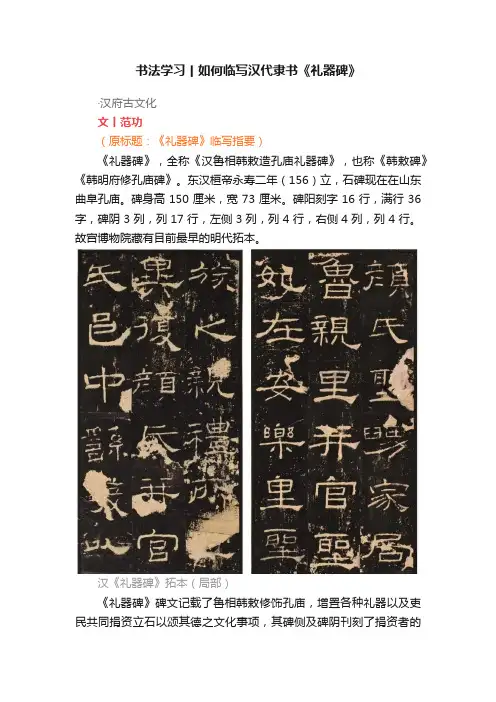 书法学习丨如何临写汉代隶书《礼器碑》
·汉府古文化
文丨范功
（原标题：《礼器碑》临写指要）
《礼器碑》，全称《汉鲁相韩敕造孔庙礼器碑》，也称《韩敕碑》
《韩明府修孔庙碑》。东汉桓帝永寿二年（156）立，石碑现在在山东
曲阜孔庙。碑身高 150 厘米，宽 73 厘米。碑阳刻字 16 行，满行 36
字，碑阴 3 列，列 17 行，左侧 3 列，列 4 行，右侧 4 列，列 4 行。
故宫博物院藏有目前最早的明代拓本。
顏氏聖舅家居
魯親里并官聖
妃在安樂里聖
族之親禮所
異復顏氏并官
氏邑中繇發以
汉《礼器碑》拓本（局部）
《礼器碑》碑文记载了鲁相韩敕修饰孔庙，增置各种礼器以及吏
民共同捐资立石以颂其德之文化事项，其碑侧及碑阴刊刻了捐资者的